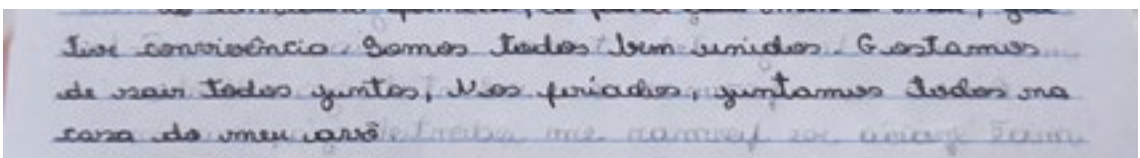 tive convivência. Somos todos bem unidos. Gostamos
de sair todos juntos, Nos feriados, juntamos todos na
casa do meu avô